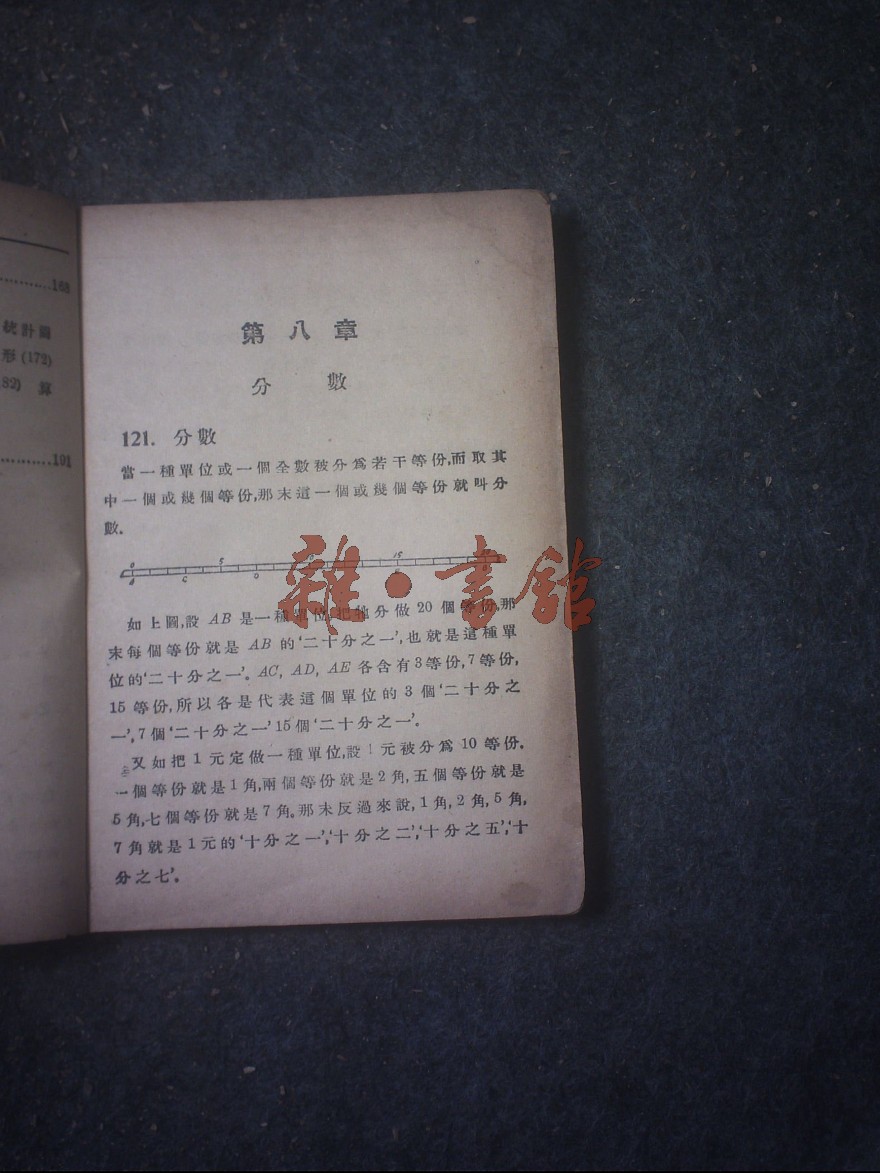 168
統計圖
形(172)
82) 算
191
第八章
分數
121. 分數
當一種單位或一個全數被分爲若干等份,而取其
中一個或幾個等份,那末這一個或幾個等份就叫分
數.
5 15
C D
如上圖,設 AB 是一種單位,把牠分做20個等份,那
末每個等份就是 AB 的‘二十分之一’,也就是這種單
位的‘二十分之一’。AC, AD, AE 各含有3等份,7等份,
15等份,所以各是代表這個單位的3個‘二十分之
一’,7個‘二十分之一’15個‘二十分之一’。
又如把1元定做一種單位,設1元被分爲10等份.
一個等份就是1角,兩個等份就是2角,五個等份就是
5角,七個等份就是7角。那末反過來說,1角,2角,5角,
7角就是1元的‘十分之一’,‘十分之二’,‘十分之五’,‘十
分之七’。
雜·書館